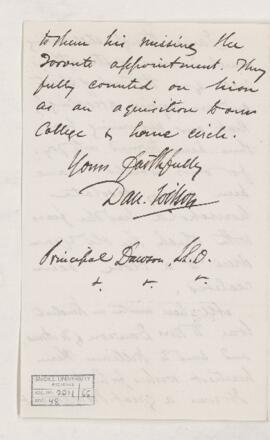 to them his missing the
Toronto appointment. They
fully counted on him
as an aquisition to our
College & home circle.
Yours faithfully
Dan. Wilson
Principal Dawson, LL.D.
&. &. &.
McGILL UNIVERSITY
ARCHIVES
ACC. NO. 2211 / 65
REF. 48